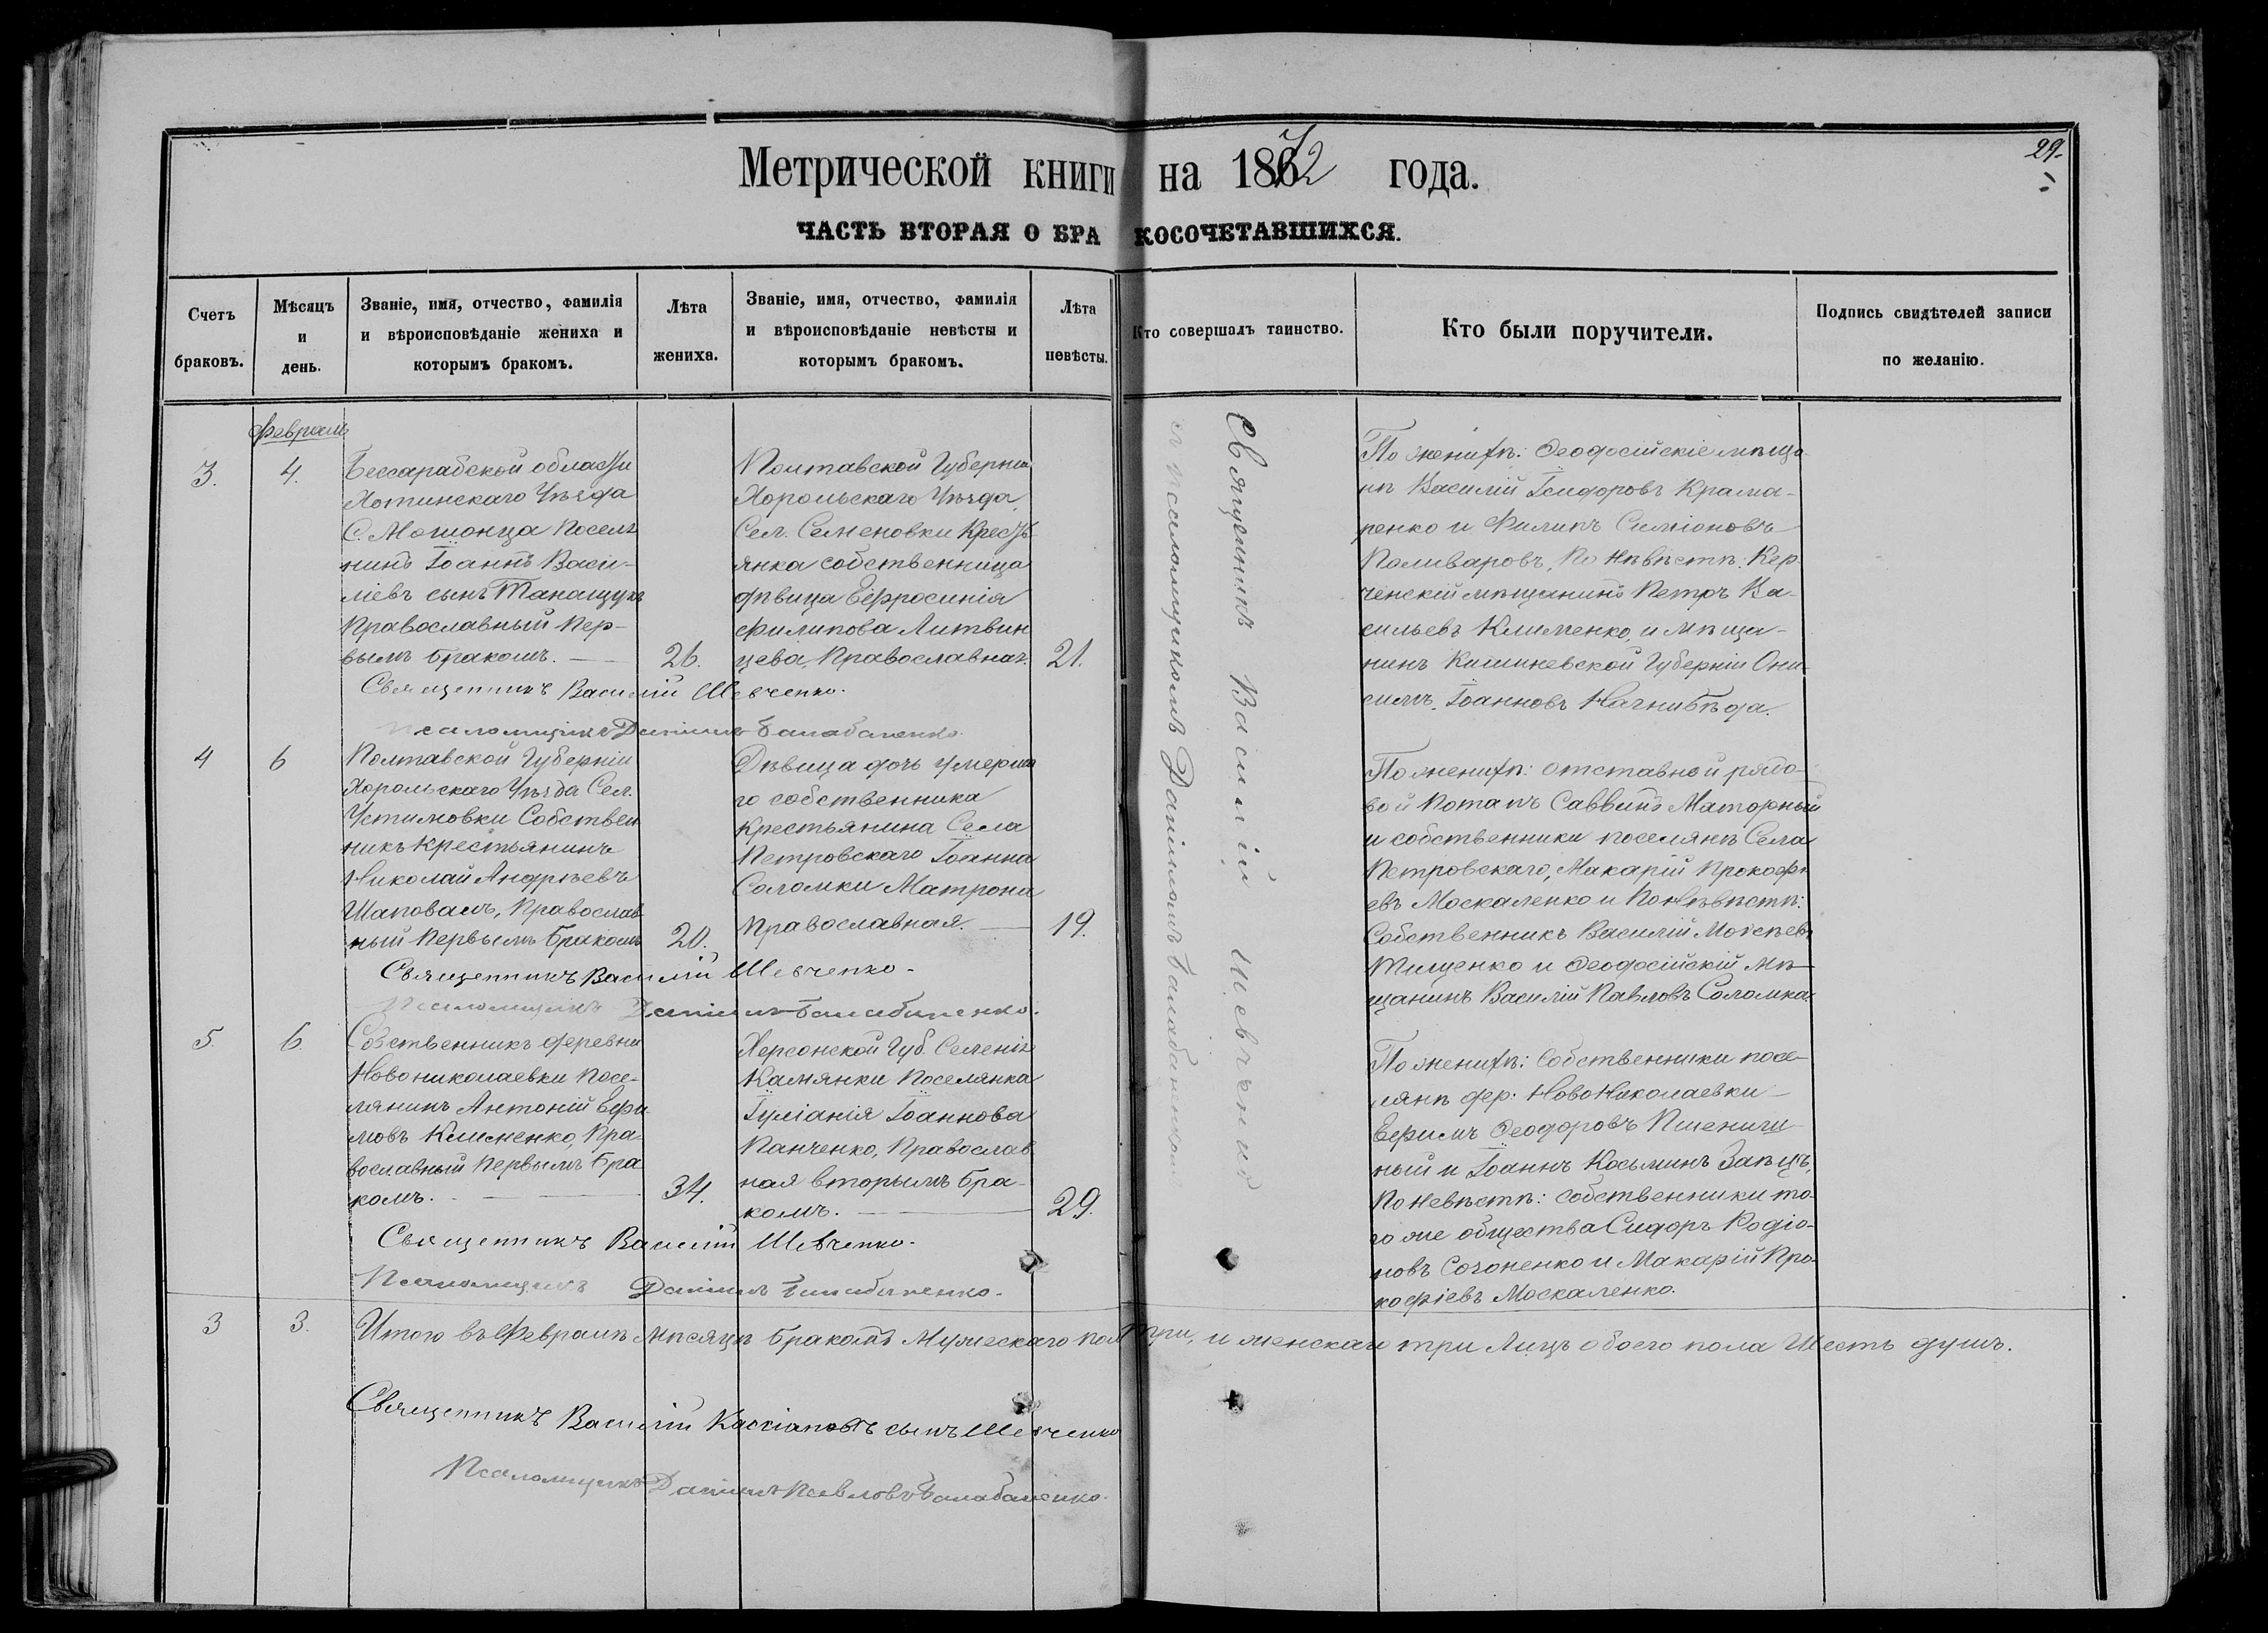 29.
Метрической книги на 1872 года.
ЧАСТЬ ВТОРАЯ О БРАКОСОЧЕТАВШИХСЯ.
Счетъ браковъ.
Мѣсяцъ и день.
Званіе, имя, отчество, фамилія
и вѣроисповѣданіе жениха и
которымъ бракомъ.
Лѣта жениха.
Званіе, имя, отчество, фамилія
и вѣроисповѣданіе невѣсты и
которымъ бракомъ.
Лѣта невѣсты.
Кто совершалъ таинство.
Кто были поручители.
Подпись свидѣтелей записи
по желанію.
Февраль
3.
4.
Бессарабской области
Хотинскаго Уѣзда
С. Мошонца Посел
нинъ Іоаннъ Васи-
ліевъ сынъ Танащукъ
Православный Пер-
вымъ бракомъ.
26.
Полтавской Губерніи
Хорольскаго Уѣзда,
Сел. Семеновки Кресть-
янка собственница
дѣвица Ефросинія
Филипова Литвин
цева, Православная.
21.
Священникъ Василій Шевченко.
Псаломщикъ Даніилъ Балабаненко.
По женихѣ: Феодосійскіе мѣща-
нѣ Василій Ісидоровъ Крама-
ренко и Филипъ Симіоновъ
Поливаровъ, По Нѣвѣстѣ: Кер
ченскій мѣщанинъ Петръ Ва-
сильевъ Клименко, и мѣща-
нинъ Кишиневской Губерніи Они-
симъ Іоанновъ Нагнибѣда.
4
6
Полтавской Губерніи
Хорольскаго Уѣзда Сел.
Устимовки Собствен
никъ Крестьянинъ
Николай Андрѣевъ
Шаповалъ, Православ
ный Первымъ бракомъ
20.
Дѣвица дочь умерша
го собственника
Крестьянина Села
Петровскаго Іоанна
Соломки Матрона
Православная.
19.
Священникъ Василій Шевченко.
Псаломщикъ Даніилъ Балабаненко.
По женихѣ: отставной рядо-
вой Потапъ Саввинъ Маторный
и собственники поселянѣ Села
Петровскаго, Макарій Прокофи
евъ Москаленко и По Нѣвѣстѣ:
Собственникъ Василій Моѵсѣевъ
Тищенко и Феодосійскій Мѣ-
щанинъ Василій Павловъ Соломка.
5.
6.
Собственникъ деревни
Новониколаевки Посе-
лянинъ Антоній Ефи
мовъ Клименко, Пра-
вославный Первымъ бра
комъ.
34.
Херсонской Губ. Селенія
Камянки Поселянка
Іуліанія Іоаннова
Панченко, Православ
ная вторымъ бра-
комъ.
29.
Священникъ Василій Шевченко.
Псаломщикъ Даніилъ Балабаненко.
По женихѣ: Собственники посе-
лянѣ дер. НовоНиколаевки
Ефимъ Феодоровъ Пшенич-
ный и Іоаннъ Косьминъ Заецъ,
По Невѣстѣ: собственники то-
го же общества Сидоръ Родіо-
новъ Согоненко и Макарій Про-
кофіевъ Москаленко.
Священникъ Василій Шевченко
и Псаломщикомъ Даніиломъ Балабаненкомъ
3
3.
Итого въ Февралѣ мѣсяцѣ бракомъ Мужескаго пола три, и женскаго три Лицъ обоего пола Шесть душъ.
Священникъ Василій Кассіановъ сынъ Шевченко
Псаломщикъ Даніилъ Павловъ Балабаненко.